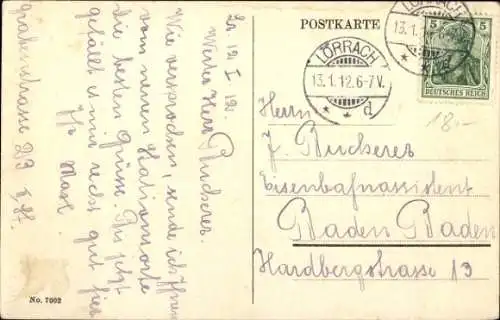 POSTKARTE
LÖRRACH
13.1.12.6-7V.
* * d
LÖRRACH
13.1.
5 5
DEUTSCHES REICH
18.-
Herrn
J. Bucherer
Eisenbahnassistent
Baden Baden
Hardbergstrasse 13
Lö. 12 I 12.
Werter Herr Bucherer.
Wie versprochen, sende ich Ihnen
vom neuen Stationsorte
die besten Grüsse. Bis jetzt
gefällt es mir recht gut hier
Ihr
Grabenstrasse 23
No. 7002